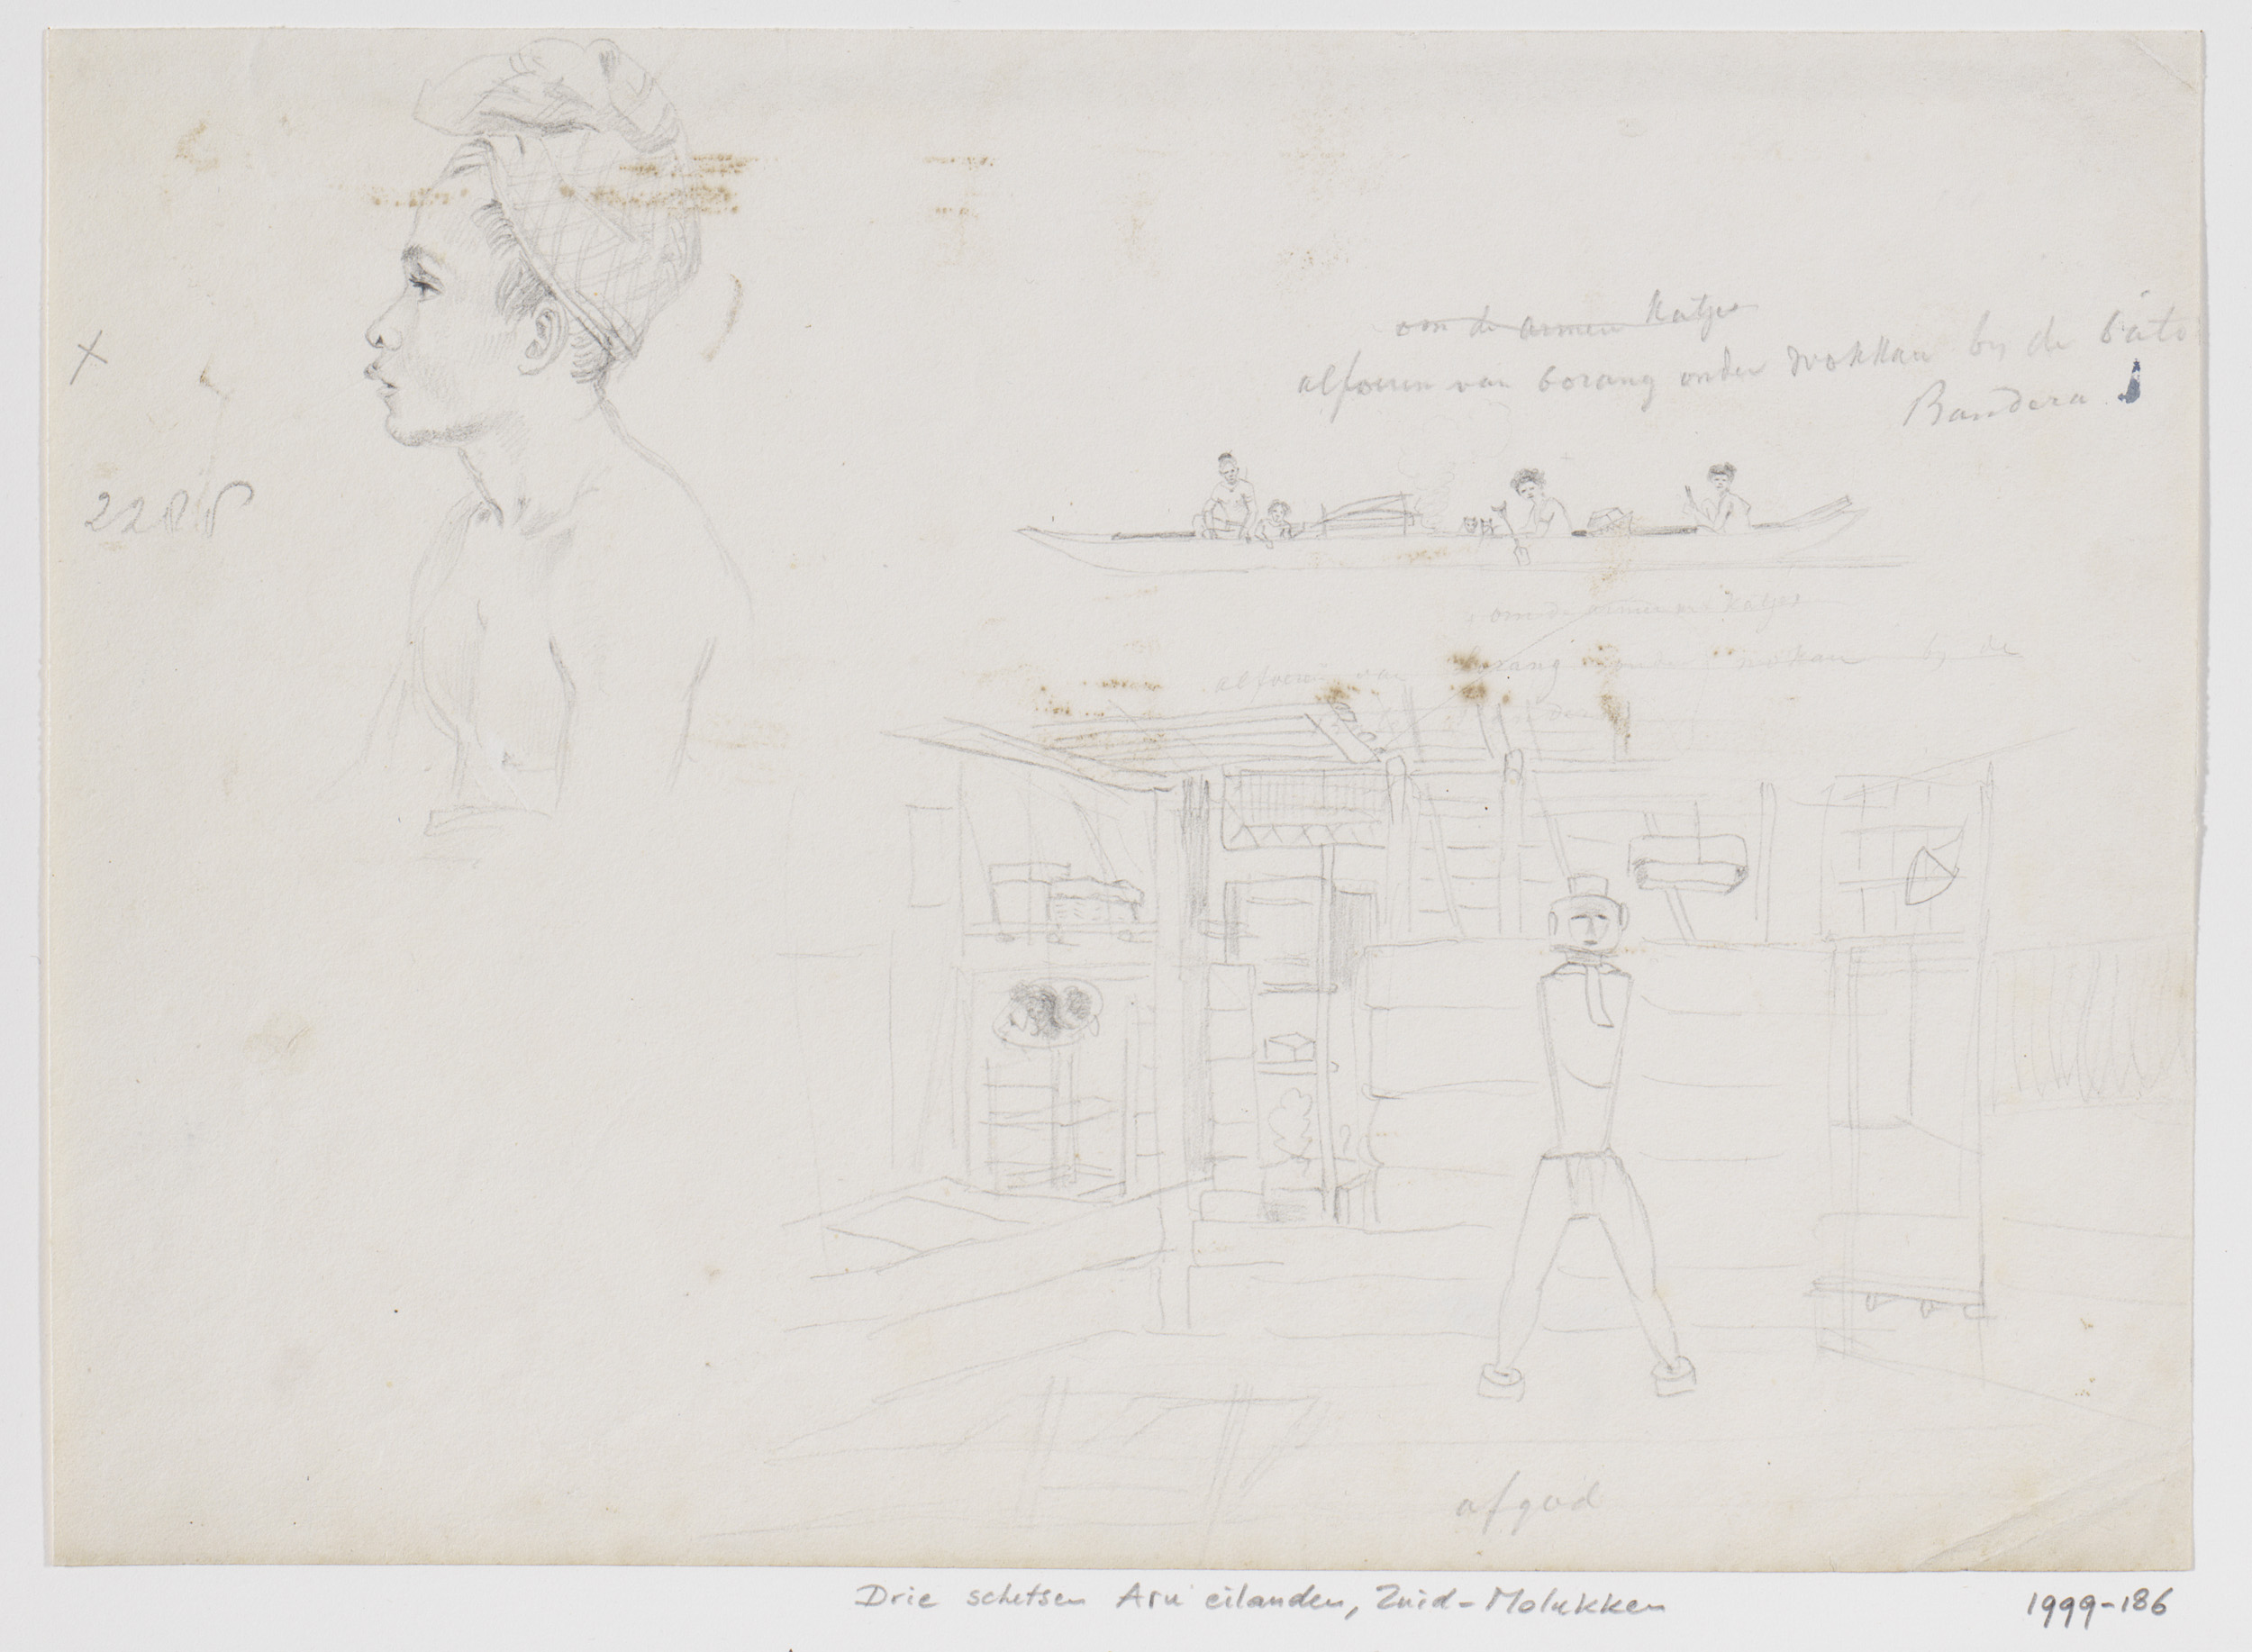 X
22
om de armen Katjes
alfoeren van borang onder Wokkan by de bato
Bandera
om de armen Katjes
alfoeren van borang onder wokan by de
afgod
Drie schetsen Aru eilanden, Zuid-Molukken
1999-186